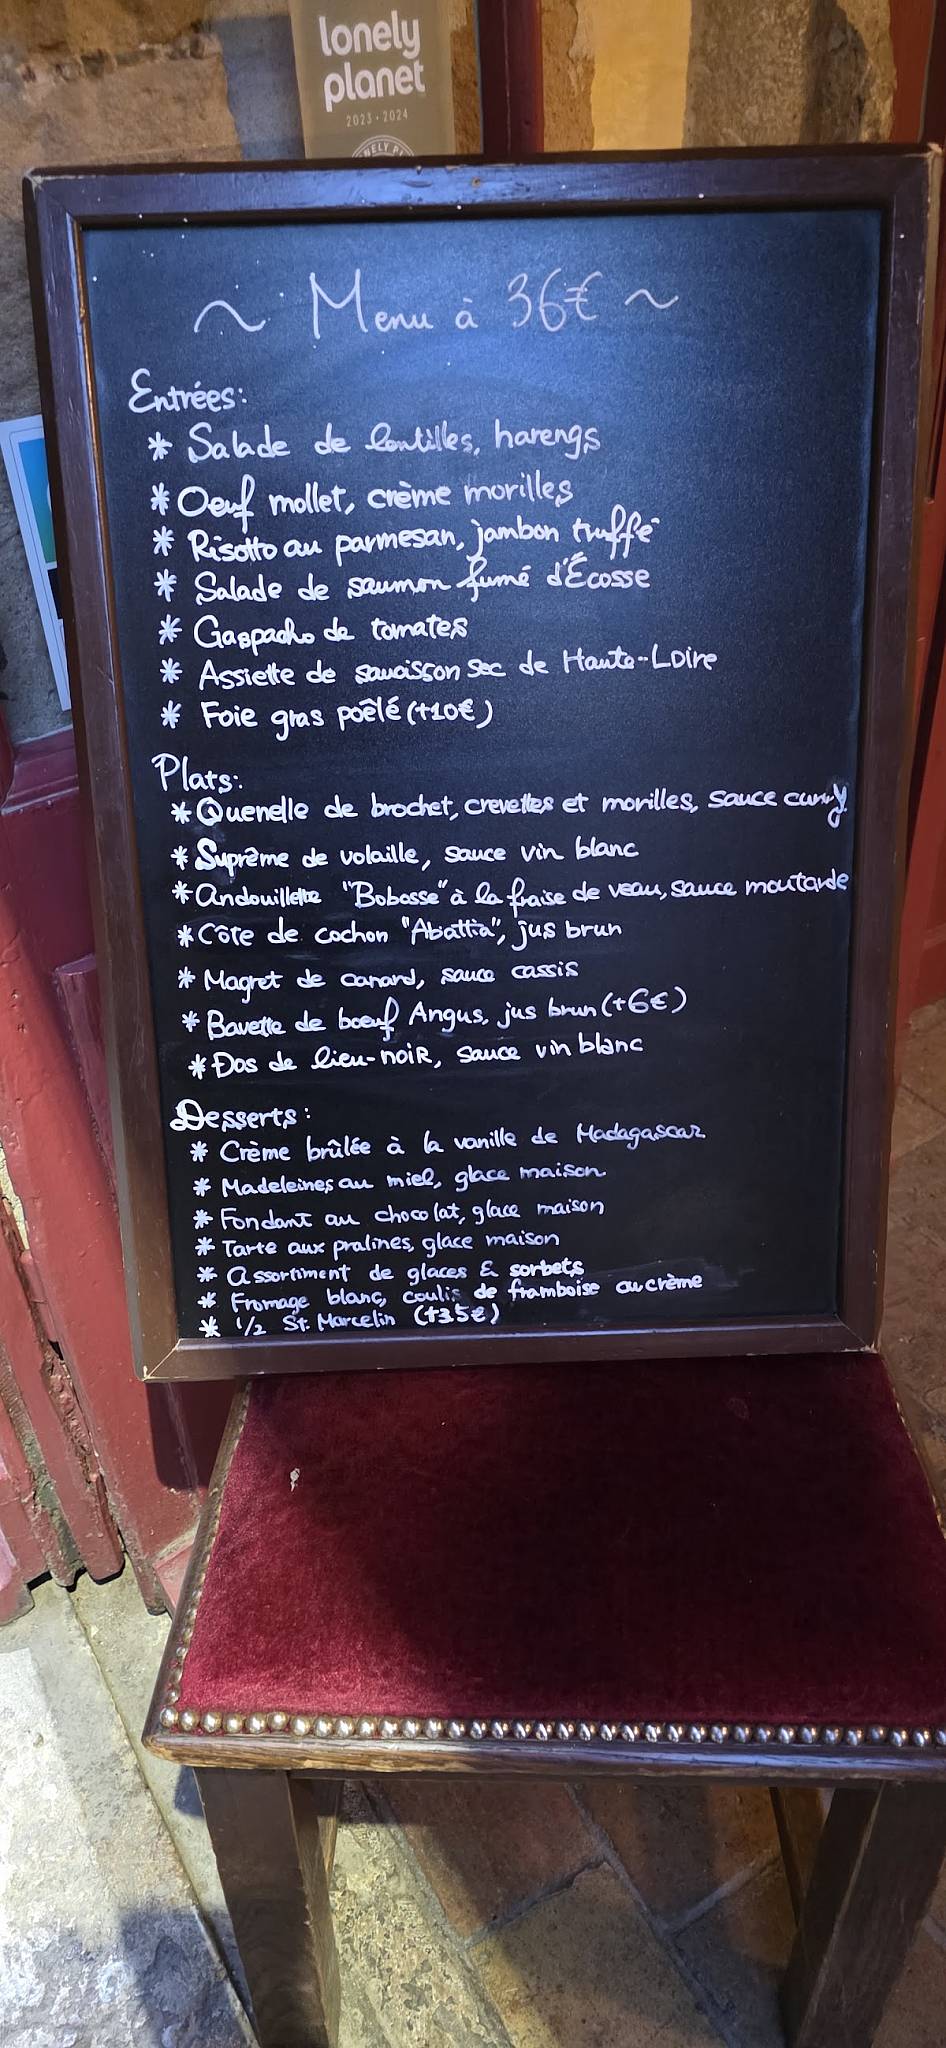 lonely
planet
2023 • 2024
~ Menu à 36€ ~
Entrées:
* Salade de lentilles, harengs
* Oeuf mollet, crème morilles
* Risotto au parmesan, jambon truffé
* Salade de saumon fumé d'Écosse
* Gaspacho de tomates
* Assiette de saucisson sec de Haute-Loire
* Foie gras poêlé (+10€)
Plats:
* Quenelle de brochet, crevettes et morilles, sauce curry
* Suprême de volaille, sauce vin blanc
* Andouillette "Bobosse" à la fraise de veau, sauce moutarde
* Côte de cochon "Abattia", jus brun
* Magret de canard, sauce cassis
* Bavette de boeuf Angus, jus brun (+6€)
* Dos de lieu-noir, sauce vin blanc
Desserts:
* Crème brûlée à la vanille de Madagascar
* Madeleines au miel, glace maison
* Fondant au chocolat, glace maison
* Tarte aux pralines, glace maison
* Assortiment de glaces & sorbets
* Fromage blanc, coulis de framboise ou crème
* 1/2 St. Marcelin (+3.5€)